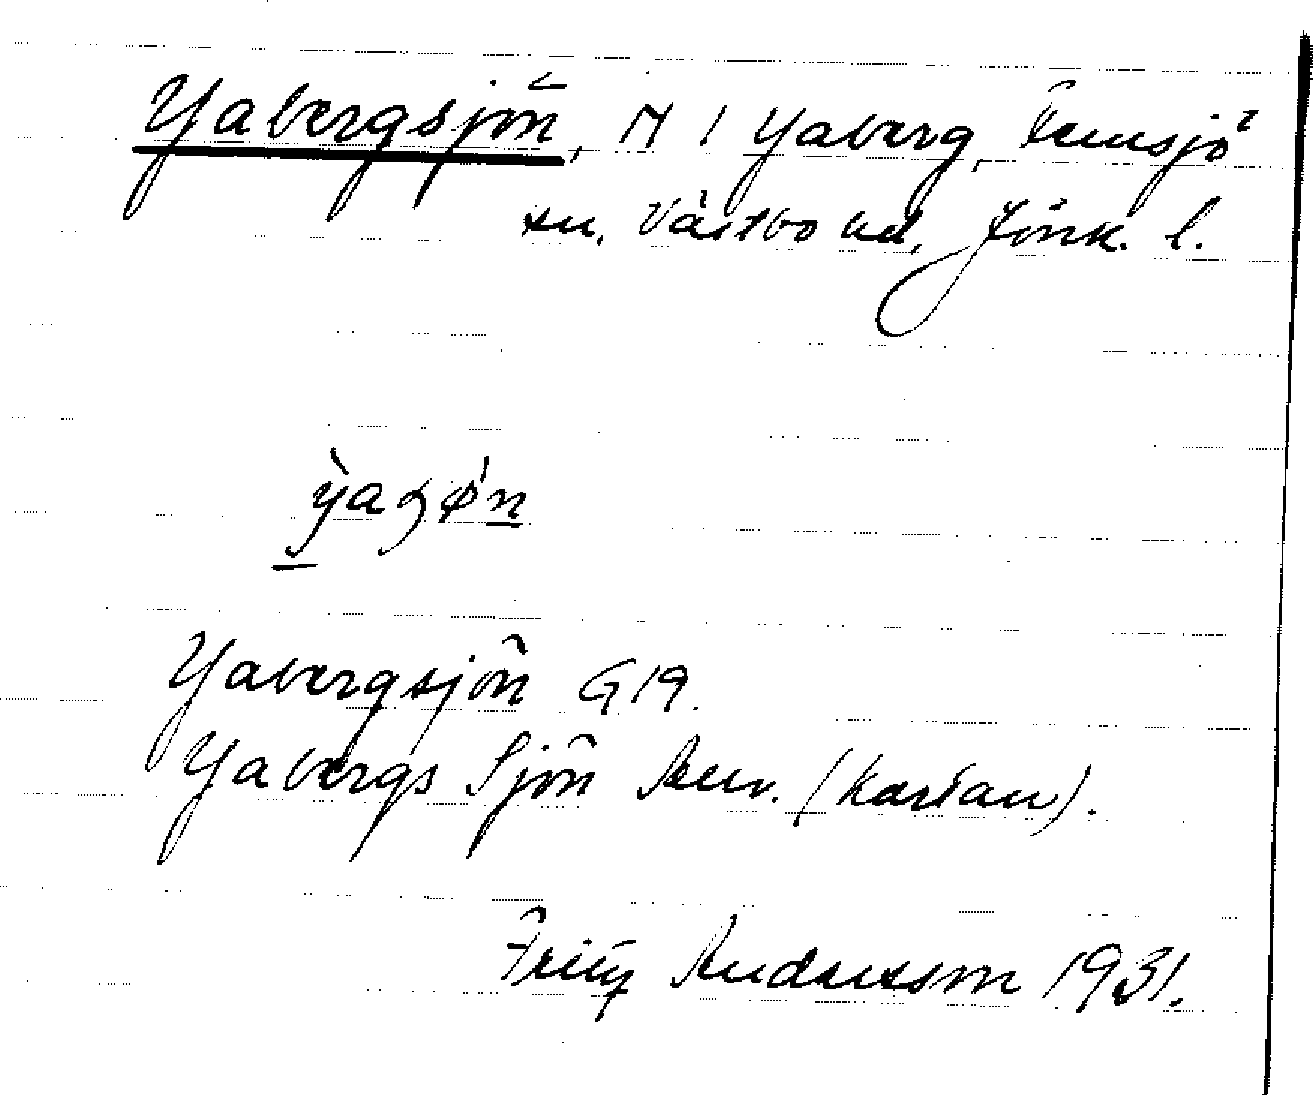 Yabergsjön, N / Yaberg, Femsjö
sn. Västbo hd, Jönk. l.
Yabergsjön G19.
Yabergs Sjön (kartan).
Fritz Andersson 1931.